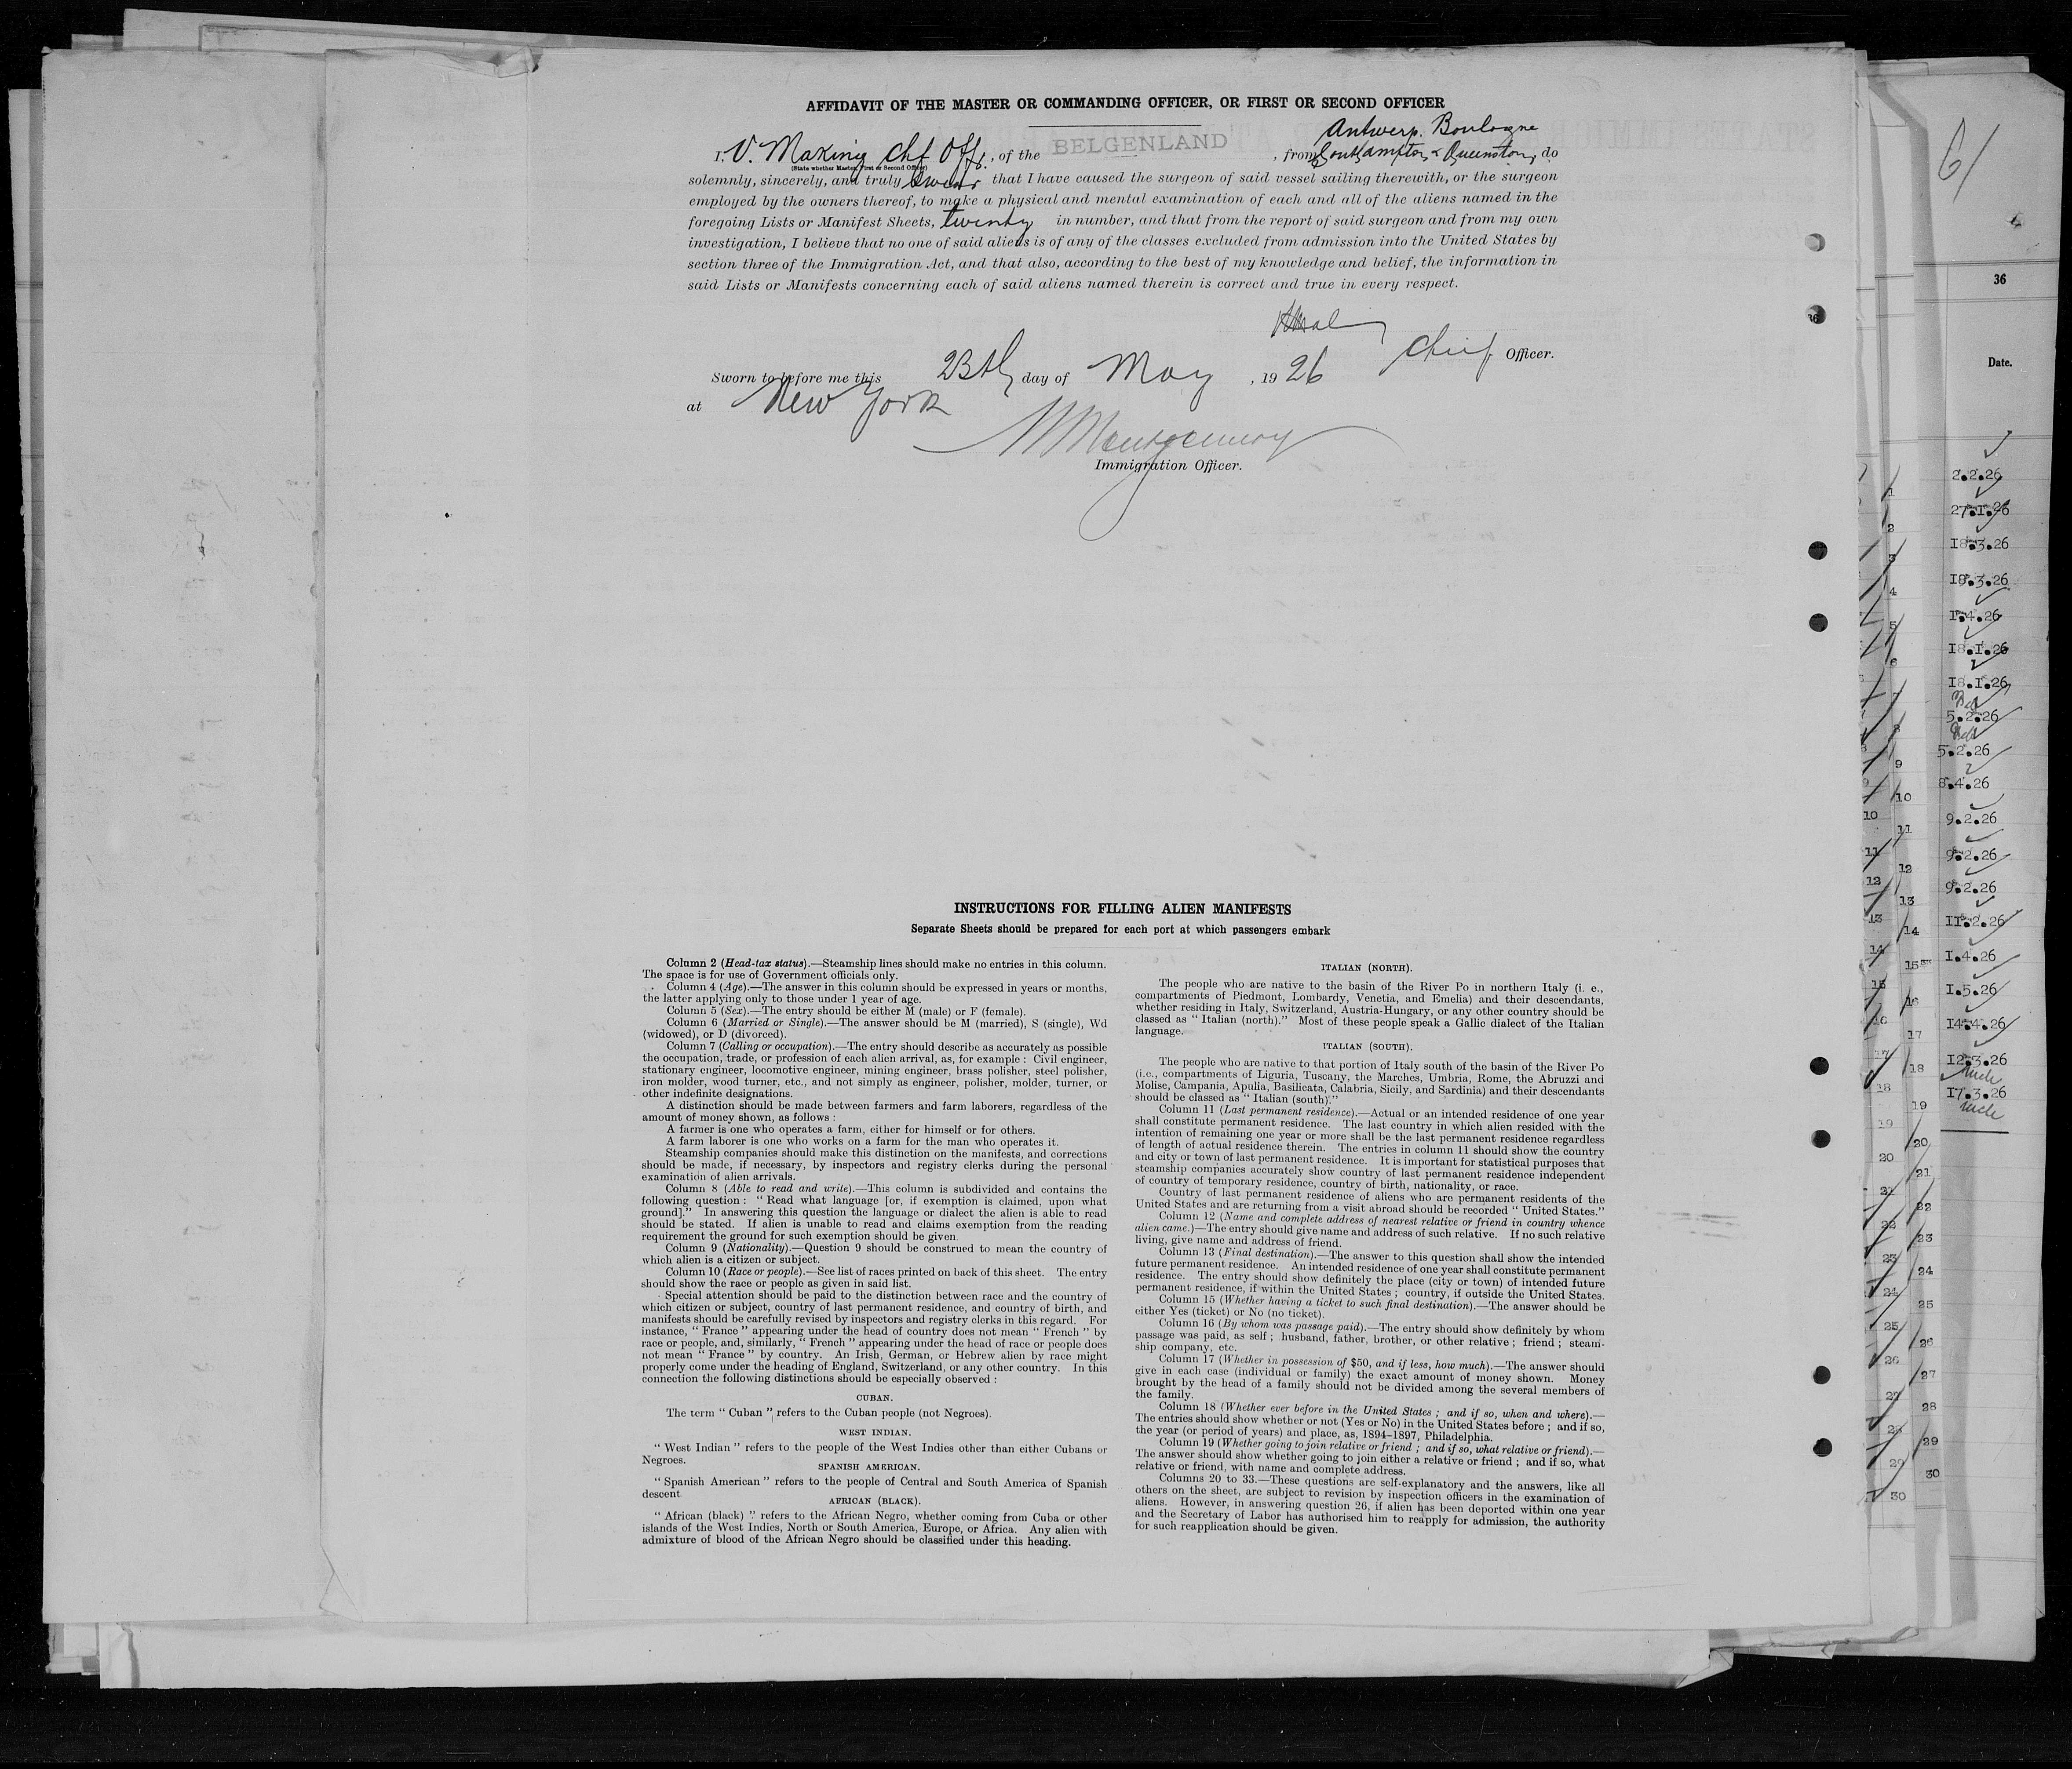 AFFIDAVIT OF THE MASTER OR COMMANDING OFFICER, OR FIRST OR SECOND OFFICER
Antwerp. Boulogne
I, V. Making Chf Off., of the BELGENLAND, from Southampton & Queenstown, do
(State whether Master, First or Second Officer)
solemnly, sincerely, and truly swear that I have caused the surgeon of said vessel sailing therewith, or the surgeon
employed by the owners thereof, to make a physical and mental examination of each and all of the aliens named in the
foregoing Lists or Manifest Sheets, twenty in number, and that from the report of said surgeon and from my own
investigation, I believe that no one of said aliens is of any of the classes excluded from admission into the United States by
section three of the Immigration Act, and that also, according to the best of my knowledge and belief, the information in
said Lists or Manifests concerning each of said aliens named therein is correct and true in every respect.
Chief Officer.
Sworn to before me this 23th day of May, 1926
at New York
Montgomery
Immigration Officer.
INSTRUCTIONS FOR FILLING ALIEN MANIFESTS
Separate Sheets should be prepared for each port at which passengers embark
Column 2 (Head-tax status).—Steamship lines should make no entries in this column.
The space is for use of Government officials only.
Column 4 (Age).—The answer in this column should be expressed in years or months,
the latter applying only to those under 1 year of age.
Column 5 (Sex).—The entry should be either M (male) or F (female).
Column 6 (Married or Single).—The answer should be M (married), S (single), Wd
(widowed), or D (divorced).
Column 7 (Calling or occupation).—The entry should describe as accurately as possible
the occupation, trade, or profession of each alien arrival, as, for example : Civil engineer,
stationary engineer, locomotive engineer, mining engineer, brass polisher, steel polisher,
iron molder, wood turner, etc., and not simply as engineer, polisher, molder, turner, or
other indefinite designations.
A distinction should be made between farmers and farm laborers, regardless of the
amount of money shown, as follows :
A farmer is one who operates a farm, either for himself or for others.
A farm laborer is one who works on a farm for the man who operates it.
Steamship companies should make this distinction on the manifests, and corrections
should be made, if necessary, by inspectors and registry clerks during the personal
examination of alien arrivals.
Column 8 (Able to read and write).—This column is subdivided and contains the
following question : " Read what language [or, if exemption is claimed, upon what
ground]." In answering this question the language or dialect the alien is able to read
should be stated. If alien is unable to read and claims exemption from the reading
requirement the ground for such exemption should be given.
Column 9 (Nationality).—Question 9 should be construed to mean the country of
which alien is a citizen or subject.
Column 10 (Race or people).—See list of races printed on back of this sheet. The entry
should show the race or people as given in said list.
Special attention should be paid to the distinction between race and the country of
which citizen or subject, country of last permanent residence, and country of birth, and
manifests should be carefully revised by inspectors and registry clerks in this regard. For
instance, " France " appearing under the head of country does not mean " French " by
race or people, and, similarly, " French " appearing under the head of race or people does
not mean " France " by country. An Irish, German, or Hebrew alien by race might
properly come under the heading of England, Switzerland, or any other country. In this
connection the following distinctions should be especially observed :
CUBAN.
The term " Cuban " refers to the Cuban people (not Negroes).
WEST INDIAN.
" West Indian " refers to the people of the West Indies other than either Cubans or
Negroes.
SPANISH AMERICAN.
" Spanish American " refers to the people of Central and South America of Spanish
descent
AFRICAN (BLACK).
" African (black) " refers to the African Negro, whether coming from Cuba or other
islands of the West Indies, North or South America, Europe, or Africa. Any alien with
admixture of blood of the African Negro should be classified under this heading.
ITALIAN (NORTH).
The people who are native to the basin of the River Po in northern Italy (i. e.,
compartments of Piedmont, Lombardy, Venetia, and Emelia) and their descendants,
whether residing in Italy, Switzerland, Austria-Hungary, or any other country should be
classed as " Italian (north)." Most of these people speak a Gallic dialect of the Italian
language.
ITALIAN (SOUTH).
The people who are native to that portion of Italy south of the basin of the River Po
(i.e., compartments of Liguria, Tuscany, the Marches, Umbria, Rome, the Abruzzi and
Molise, Campania, Apulia, Basilicata, Calabria, Sicily, and Sardinia) and their descendants
should be classed as " Italian (south)."
Column 11 (Last permanent residence).—Actual or an intended residence of one year
shall constitute permanent residence. The last country in which alien resided with the
intention of remaining one year or more shall be the last permanent residence regardless
of length of actual residence therein. The entries in column 11 should show the country
and city or town of last permanent residence. It is important for statistical purposes that
steamship companies accurately show country of last permanent residence independent
of country of temporary residence, country of birth, nationality, or race.
Country of last permanent residence of aliens who are permanent residents of the
United States and are returning from a visit abroad should be recorded " United States."
Column 12 (Name and complete address of nearest relative or friend in country whence
alien came.)—The entry should give name and address of such relative. If no such relative
living, give name and address of friend.
Column 13 (Final destination).—The answer to this question shall show the intended
future permanent residence. An intended residence of one year shall constitute permanent
residence. The entry should show definitely the place (city or town) of intended future
permanent residence, if within the United States ; country, if outside the United States.
Column 15 (Whether having a ticket to such final destination).—The answer should be
either Yes (ticket) or No (no ticket).
Column 16 (By whom was passage paid).—The entry should show definitely by whom
passage was paid, as self ; husband, father, brother, or other relative ; friend ; steam-
ship company, etc.
Column 17 (Whether in possession of $50, and if less, how much).—The answer should
give in each case (individual or family) the exact amount of money shown. Money
brought by the head of a family should not be divided among the several members of
the family.
Column 18 (Whether ever before in the United States ; and if so, when and where).—
The entries should show whether or not (Yes or No) in the United States before ; and if so,
the year (or period of years) and place, as, 1894–1897, Philadelphia.
Column 19 (Whether going to join relative or friend ; and if so, what relative or friend).—
The answer should show whether going to join either a relative or friend ; and if so, what
relative or friend, with name and complete address.
Columns 20 to 33.—These questions are self-explanatory and the answers, like all
others on the sheet, are subject to revision by inspection officers in the examination of
aliens. However, in answering question 26, if alien has been deported within one year
and the Secretary of Labor has authorised him to reapply for admission, the authority
for such reapplication should be given.
61
36
Date.
2.2.26
27.1.26
18.3.26
18.3.26
1.4.26
18.1.26
18.1.26
5.2.26
5.2.26
8.4.26
9.2.26
9.2.26
9.2.26
11.2.26
1.4.26
1.5.26
14.4.26
12.3.26
17.3.26